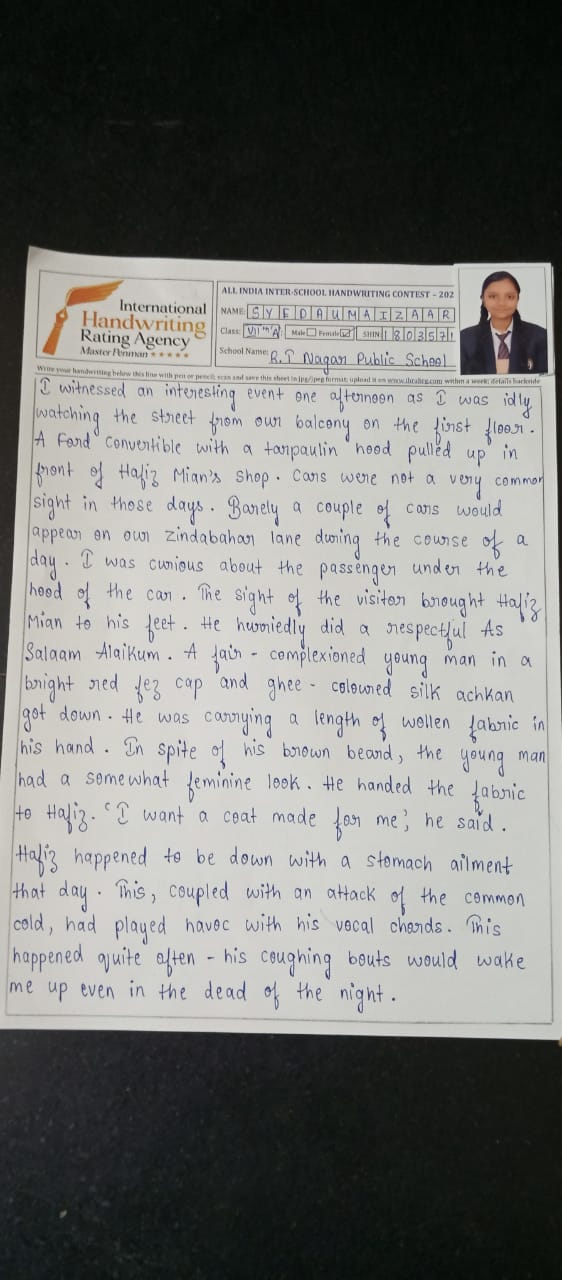 International
Handwriting
Rating Agency
Master Penman ★★★★★
ALL INDIA INTER-SCHOOL HANDWRITING CONTEST – 202
NAME: SYEDAUMAIZAAR
Class: VIIth 'A' Male Female SHIN 1803571
School Name: R.T Nagar Public School
Write your handwriting below this line with pen or pencil; scan and save this sheet in jpg/jpeg format; upload it on within a week; details backside
I witnessed an interesting event one afternoon as I was idly
watching the street from our balcony on the first floor.
A Ford convertible with a tarpaulin hood pulled up in
front of Hafiz Mian's shop. Cars were not a very common
sight in those days. Barely a couple of cars would
appear on our zindabahar lane during the course of a
day. I was curious about the passenger under the
hood of the car. The sight of the visitor brought Hafiz
Mian to his feet. He hurriedly did a respectful As
Salaam Alaikum. A fair - complexioned young man in a
bright red fez cap and ghee - coloured silk achkan
got down. He was carrying a length of wollen fabric in
his hand. In spite of his brown beard, the young man
had a somewhat feminine look. He handed the fabric
to Hafiz. 'I want a coat made for me', he said.
Hafiz happened to be down with a stomach ailment
that day. This, coupled with an attack of the common
cold, had played havoc with his vocal chords. This
happened quite often - his coughing bouts would wake
me up even in the dead of the night.